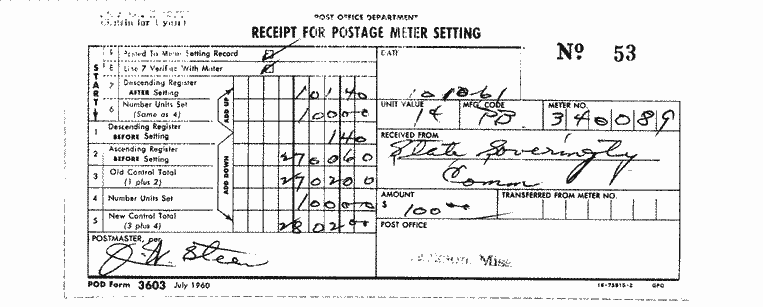 (Retain for 1 year)
POST OFFICE DEPARTMENT
RECEIPT FOR POSTAGE METER SETTING
Nº 53
START
9 Posted To Meter Setting Record
8 Line 7 Verified With Meter
7 Descending Register AFTER Setting 10140
6 Number Units Set (Same as 4) 10000
ADD UP
1 Descending Register BEFORE Setting 140
2 Ascending Register BEFORE Setting 270060
3 Old Control Total (1 plus 2) 270200
4 Number Units Set 10000
5 New Control Total (3 plus 4) 280200
ADD DOWN
POSTMASTER, per
J. W. Steen
DATE
101061
UNIT VALUE 1¢
MFG. CODE PB
METER NO. 340089
RECEIVED FROM
State Soveringty
Comm
AMOUNT
$ 100 00
TRANSFERRED FROM METER NO.
POST OFFICE
Miss
POD Form 3603 July 1960
16-75815-2 GPO